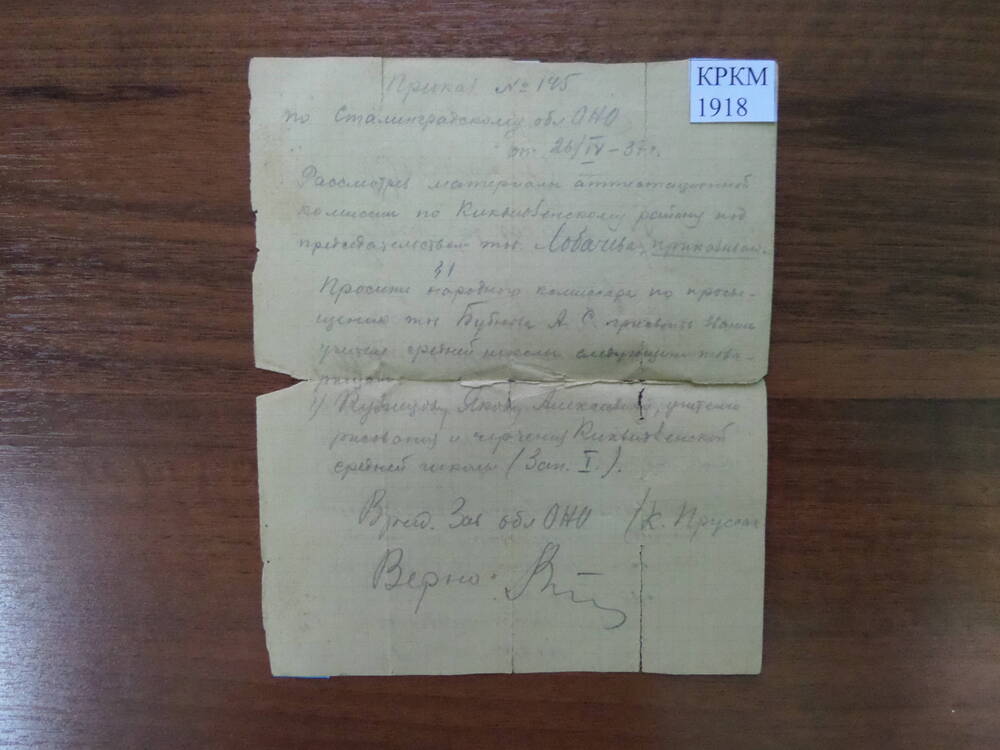 КРКМ
1918
Приказ № 145
по Сталинградскому обл ОНО
от 26/IV – 37 г.
Рассмотрев материалы аттестационной
комиссии по Киквидзенскому району под
председательством тов. Лобачева, приказываю.
§ 1
Просить народного комиссара по просве-
щению тов Бубнова А. С. присвоить звание
учителя средней школы следующим това-
рищам:
1) Кузнецову Якову Алексеевичу, учителю
рисования и черчения Киквидзенской
средней школы (Зап. I.).
Врид. Зав обл ОНО (К. Прусак
Верно: